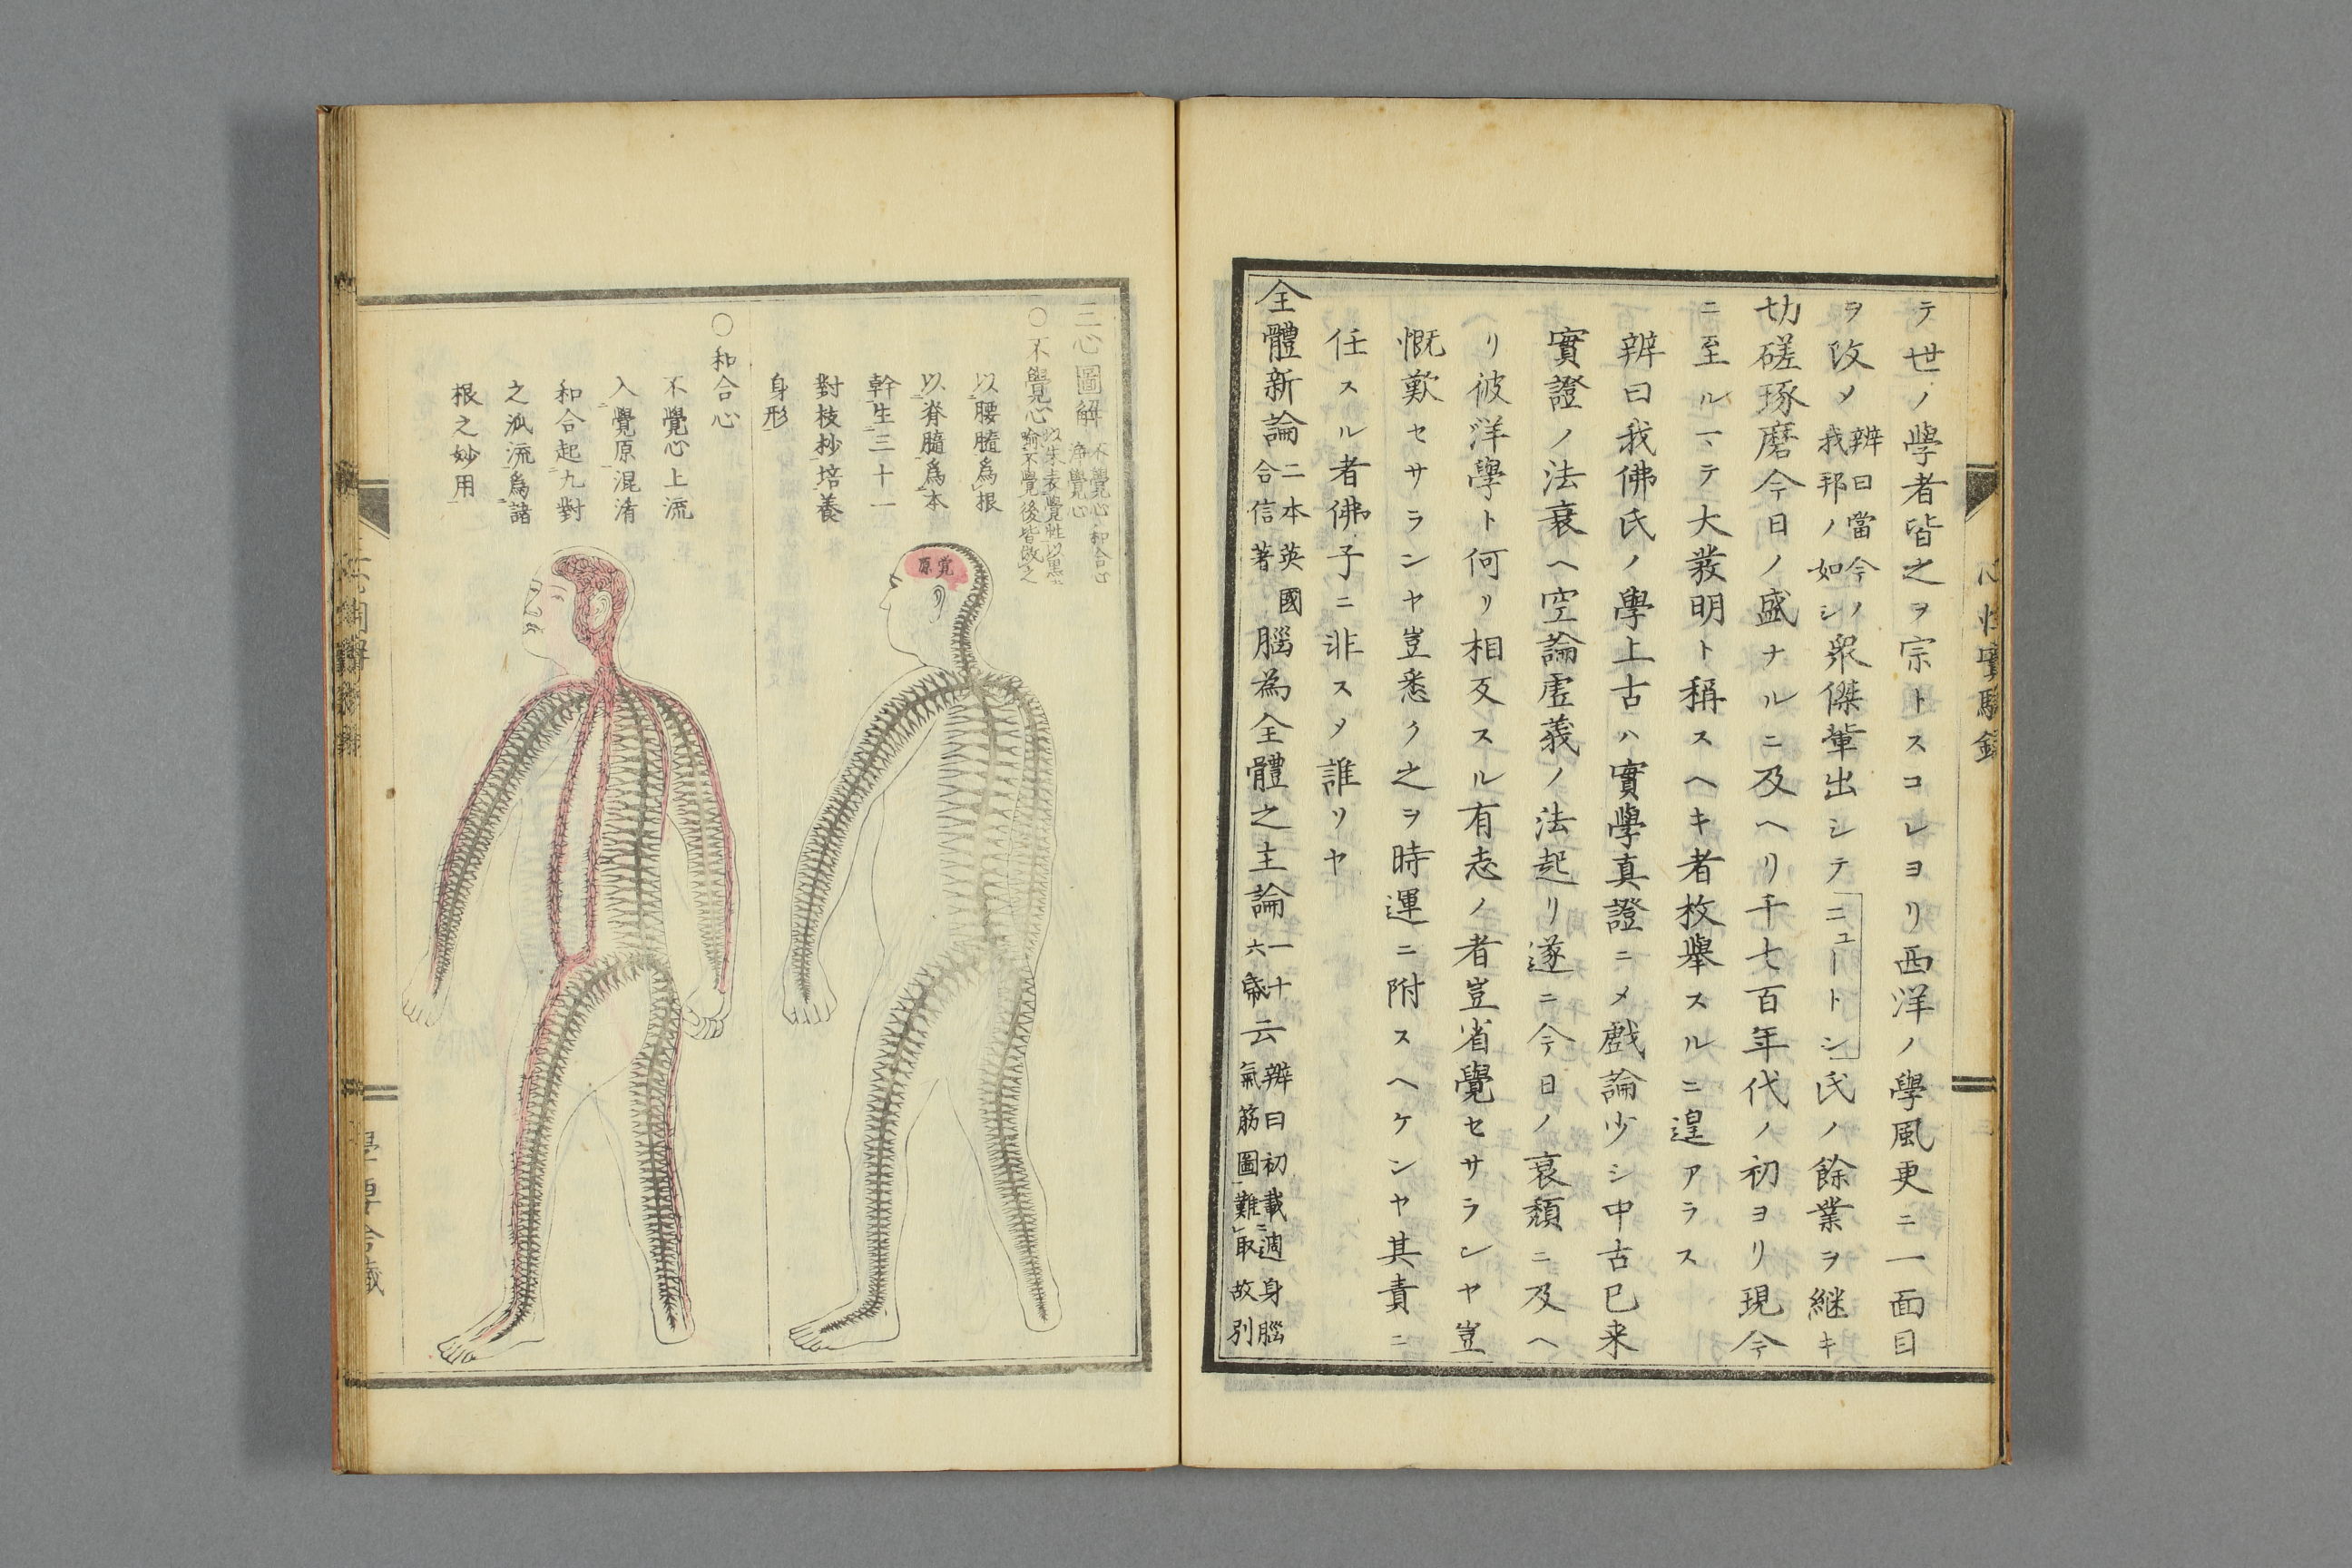 心性實驗録
テ世ノ學者皆之ヲ宗トスコレヨリ西洋ノ學風更ニ一面目
ヲ改メ
辨曰當今ノ
我邦ノ如シ
衆傑輩出シテニュートシ氏ノ餘業ヲ継キ
切磋琢磨今日ノ盛ナルニ及ヘリ千七百年代ノ初ヨリ現今
ニ至ルマテ大發明ト稱スヘキ者枚擧スルニ遑アラス
辨曰我佛氏ノ學上古ハ實學真證ニメ戲論少シ中古已来
實證ノ法衰ヘ空論虚義ノ法起リ遂ニ今日ノ衰頽ニ及ヘ
リ彼洋學ト何ソ相反スル有志ノ者豈省覺セサランヤ豈
慨歎セサランヤ豈悉ク之ヲ時運ニ附スヘケンヤ其責ニ
任スル者佛子ニ非スメ誰ソヤ
全體新論
二本英國
合信著
腦為全體之主論
一十
六歲
云
辨曰初載週身腦
氣筋圖難取故別
三心圖解
不覺心 和合心
淨覺心
○不覺心
以朱表覺性以黒
喩不覺後皆倣之
以腰髓爲根
以脊髓爲本
幹生三十一
對枝抄培養
身形
覺原
○和合心
不覺心上流
入覺原混淆
和合起九對
之派流爲諸
根之妙用